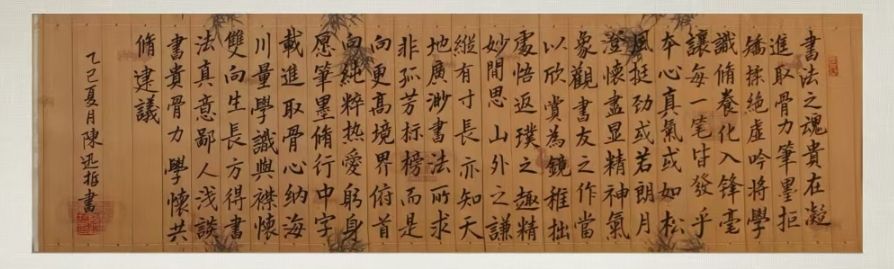 書法之魂貴在凝
進取骨力筆墨拒
矯揉絕虛吟將學
識脩養化入鋒毫
讓每一笔皆發乎
本心真氣或如松
風挺劲或若朗月
澄懷盡显精神氣
象觀書友之作當
以欣賞為鏡稚拙
處悟返璞之趣精
妙間思山外之謙
縱有寸長亦知天
地廣渺書法所求
非孤芳标榜而是
向更高境界俯首
向純粹热愛躬身
愿筆墨脩行中字
載進取骨心纳海
川量學識與襟懷
雙向生長方得書
法真意鄙人浅談
書貴骨力學懷共
脩建議
乙巳夏月陳迅哲書